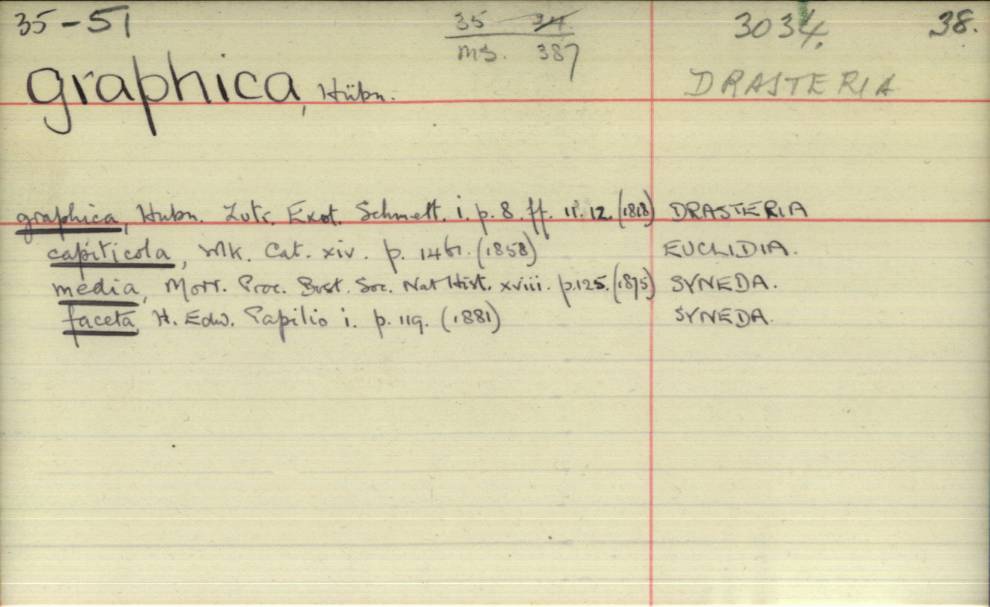 35-51 35 34. 3034. 38.
ms. 387
graphica, Hübn. DRASTERIA
graphica, Hubn. Zutr. Exot. Schmett. i. p. 8. ff. 11. 12. (1818) DRASTERIA
capiticola, Wlk. Cat. xiv. p. 1461. (1858) EUCLIDIA.
media, Morr. Proc. Bost. Soc. Nat Hist. xviii. p.125. (1875) SYNEDA.
faceta, H. Edw. Papilio i. p. 119. (1881) SYNEDA.